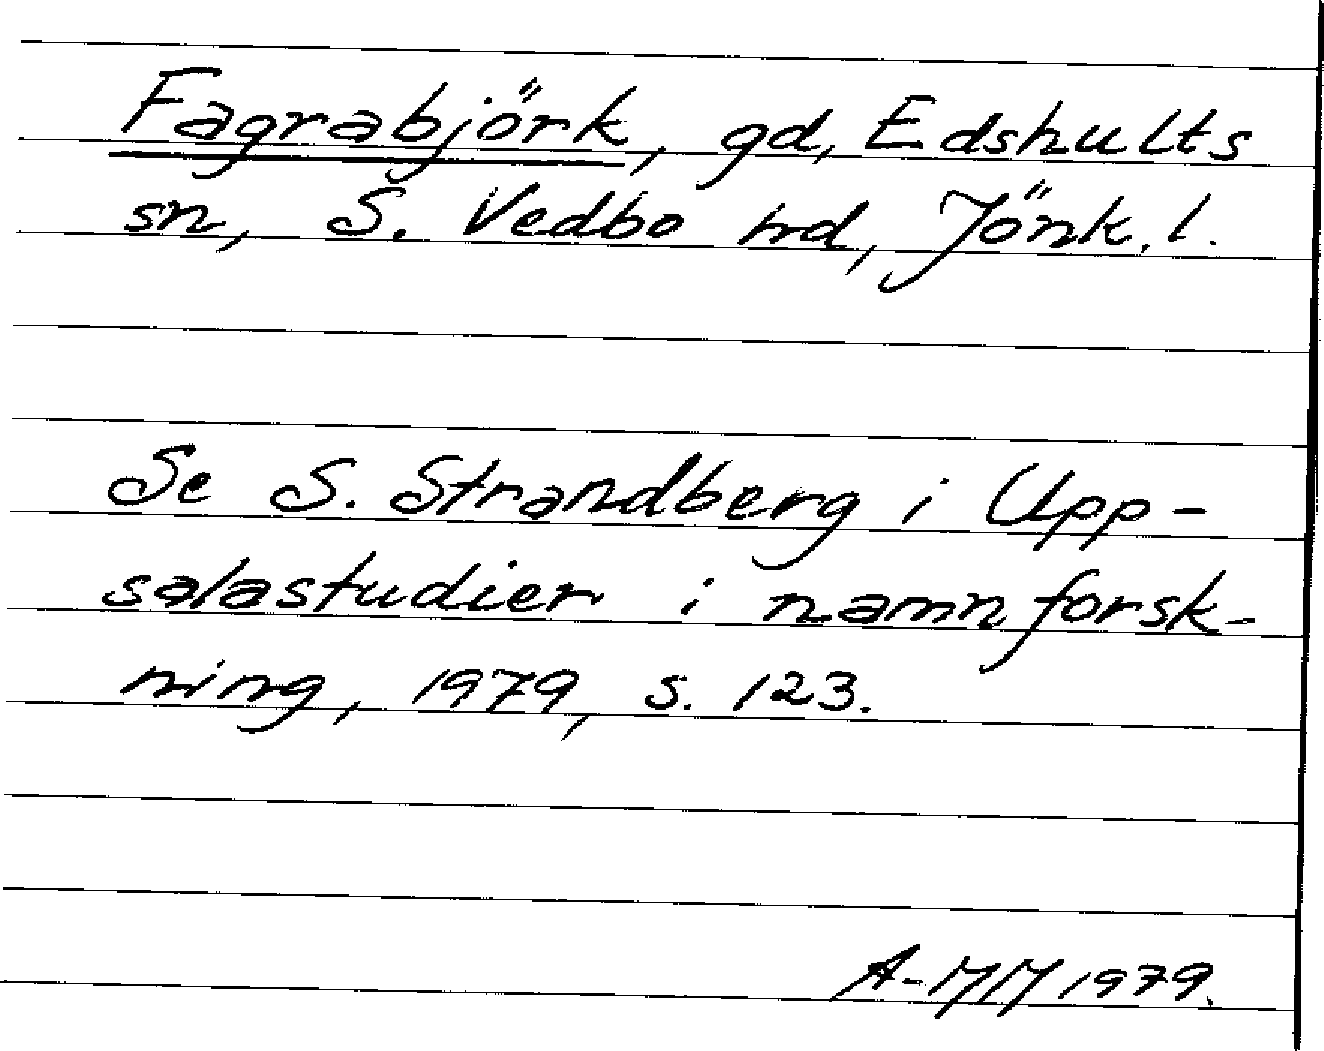 Fagrabjörk, gd, Edshults
sn, S. Vedbo hd, Jönk. l.
Se S. Strandberg i Upp-
salastudier i namnforsk-
ning, 1979, s. 123.
A-MM 1979.